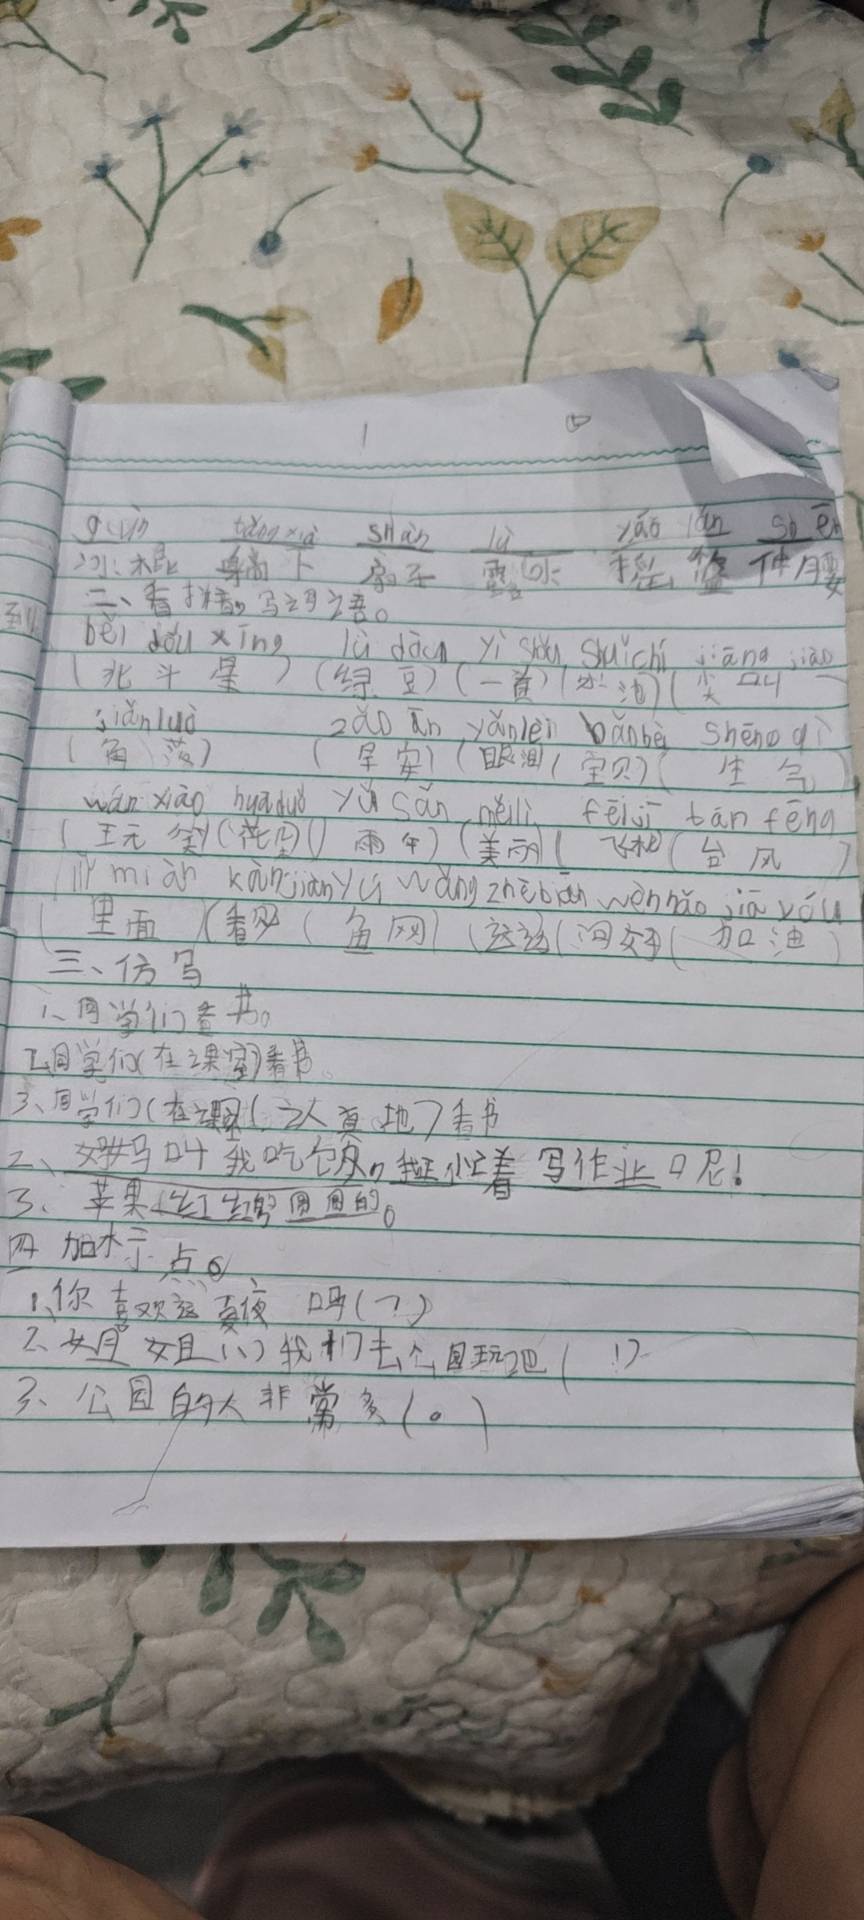 1
gùn tǎng xià shàn lù yáo lán shēn
冰棍 躺下 扇子 露水 摇篮 伸腰
二、看拼音,写词语。
běi dǒu xīng lǜ dòu yì shǒu shuǐchí jiāng jiào
(北斗星) (绿豆) (一首) (水池) (尖叫
jiǎnluò zǎo ān yǎnlèi bǎnbèi shēng qì
(角落) (早安) (眼泪) (宝贝) (生气)
wán xiào huāduǒ yǔ sǎn měilì fēijī tán fēng
(玩笑) (花朵) (雨伞) (美丽) (飞机 (台风)
lǐ miàn kànjiàn yú wǎng zhèbiān wènhǎo jiā yóu
(里面) (看见 (鱼网) (这边 (问好 (加油)
三、仿写
1、同学们看书。
2、同学们(在课室)看书。
3、同学们(在课室)(认真地)看书
2、妈妈叫我吃饭,我正忙着写作业呢!
3、苹果红红的圆圆的。
四 加标点。
1、你喜欢这夏夜吗(?)
2、姐姐(,)我们去公园玩吧(!)
3、公园的人非常多(。)